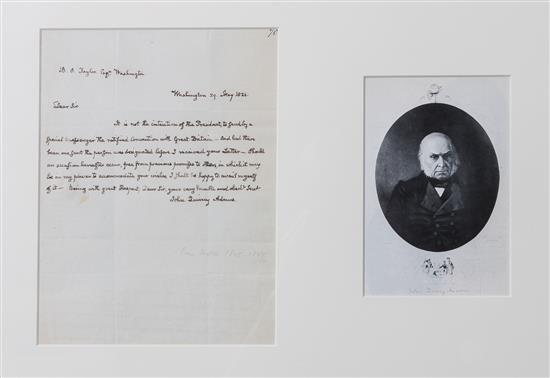 75
B. O. Taylor Esqr. Washington
Washington 29. May 1822
Dear Sir
It is not the intention of the President, to send by a
special messenger the ratified Convention with Great Britain — And had there
been one sent the person was designated before I received your Letter — Should
an occasion hereafter occur, free from previous promises to others, in which it may
be in my power to accommodate your wishes I shall be happy to avail myself
of it — Being with great Respect, Dear Sir, your very humble and obedt. Servt
John Quincy Adams
John Quincy Adams